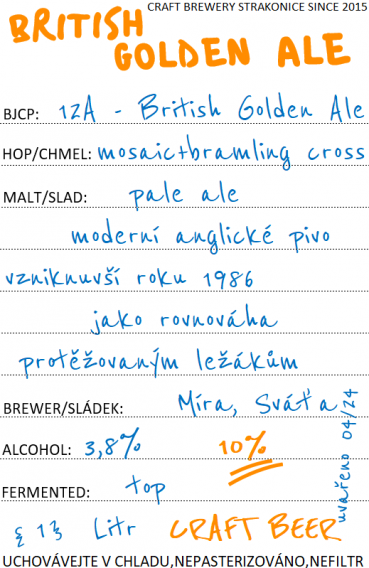 CRAFT BREWERY STRAKONICE SINCE 2015
BRITISH
GOLDEN ALE
BJCP: 12A - British Golden Ale
HOP/CHMEL: mosaic+bramling cross
MALT/SLAD: pale ale
moderní anglické pivo
vzniknuvší roku 1986
jako rovnováha
protěžovaným ležákům
BREWER/SLÁDEK: Míra, Sváťa
ALCOHOL: 3,8% 10%
FERMENTED: top
uvařeno 04/24
Litr CRAFT BEER
UCHOVÁVEJTE V CHLADU,NEPASTERIZOVÁNO,NEFILTR